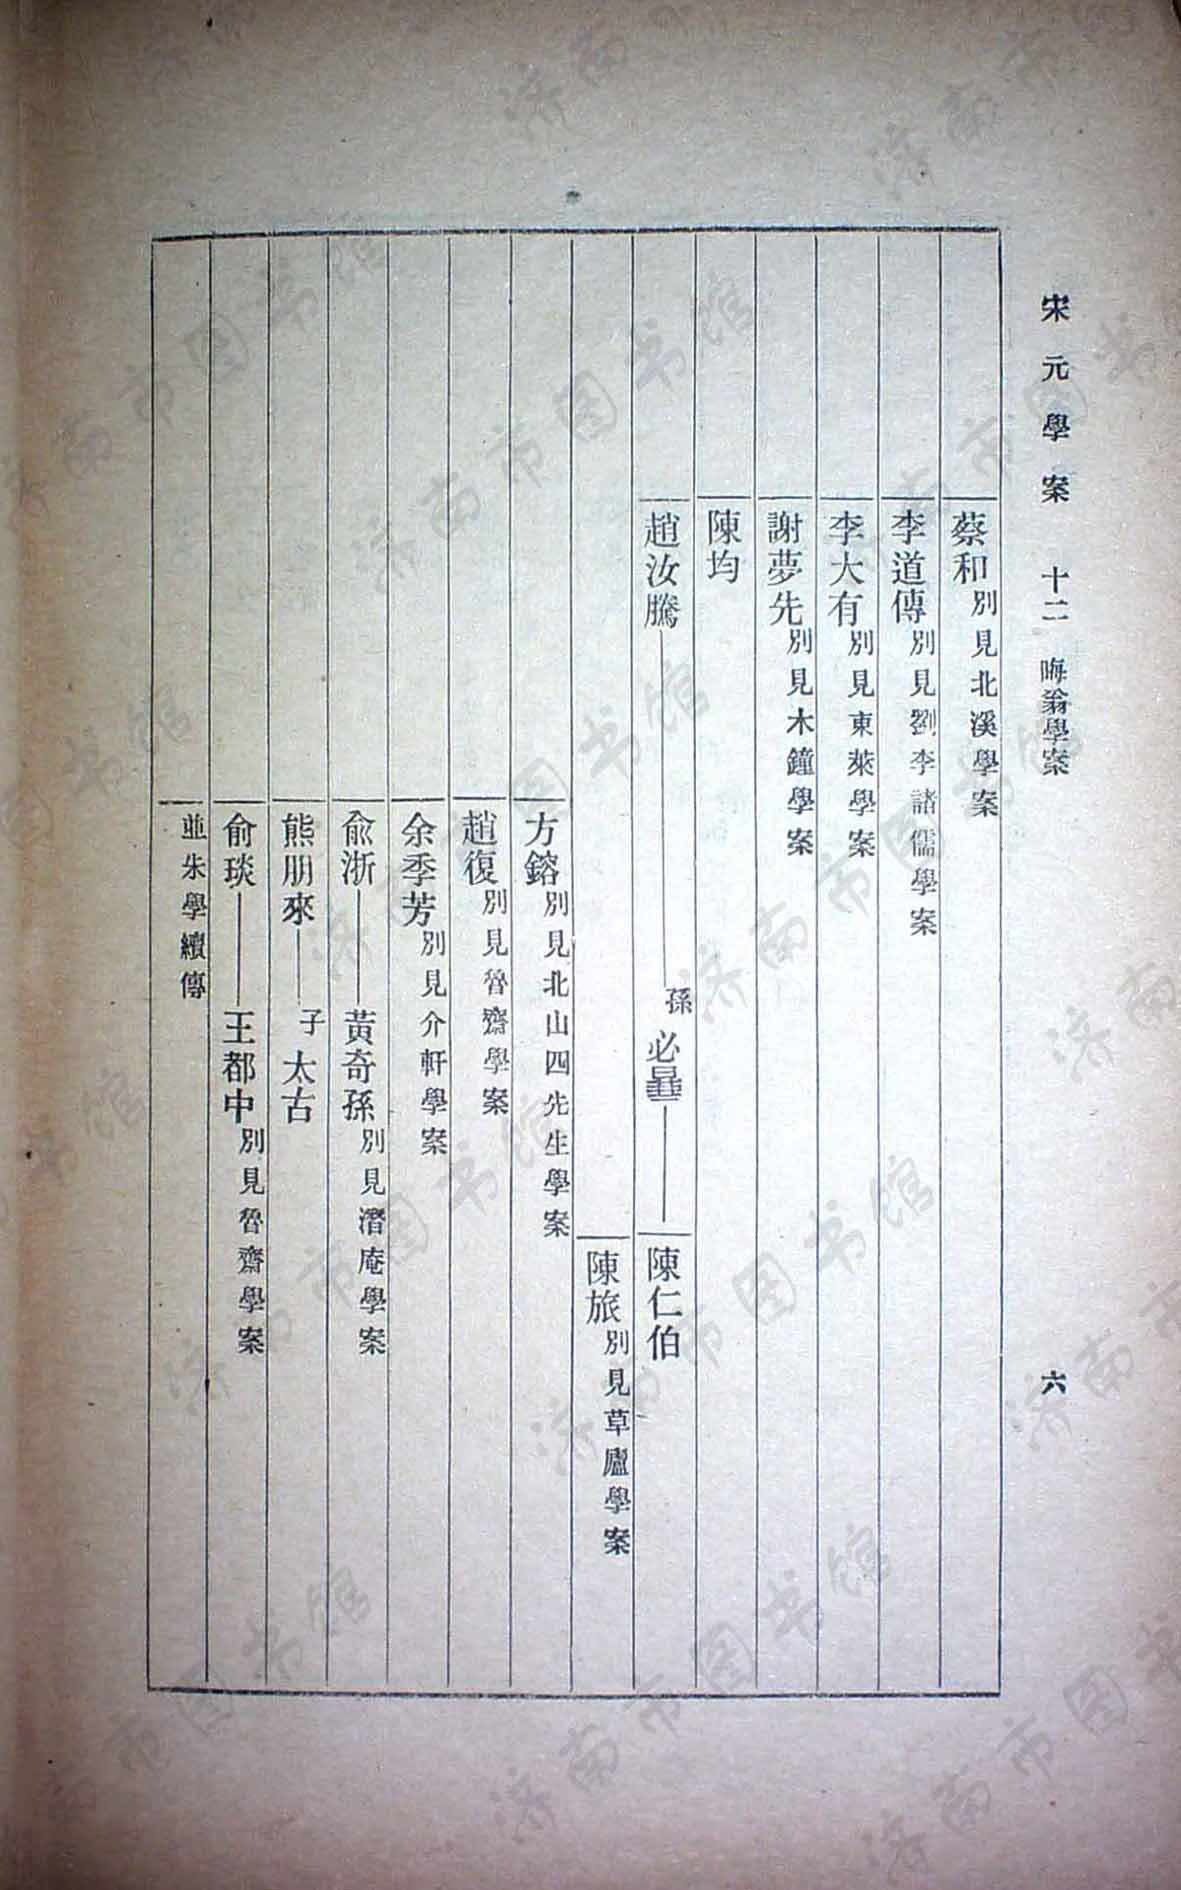 宋元學案 十二 晦翁學案 六
蔡和別見北溪學案
李道傳別見劉李諸儒學案
李大有別見東萊學案
謝夢先別見木鐘學案
陳均
趙汝騰 孫必曅 陳仁伯
陳旅別見草廬學案
方鎔別見北山四先生學案
趙復別見魯齋學案
余季芳別見介軒學案
俞浙 黃奇孫別見潛庵學案
熊朋來 子太古
俞琰 王都中別見魯齋學案
並朱學續傳
济南市图书馆